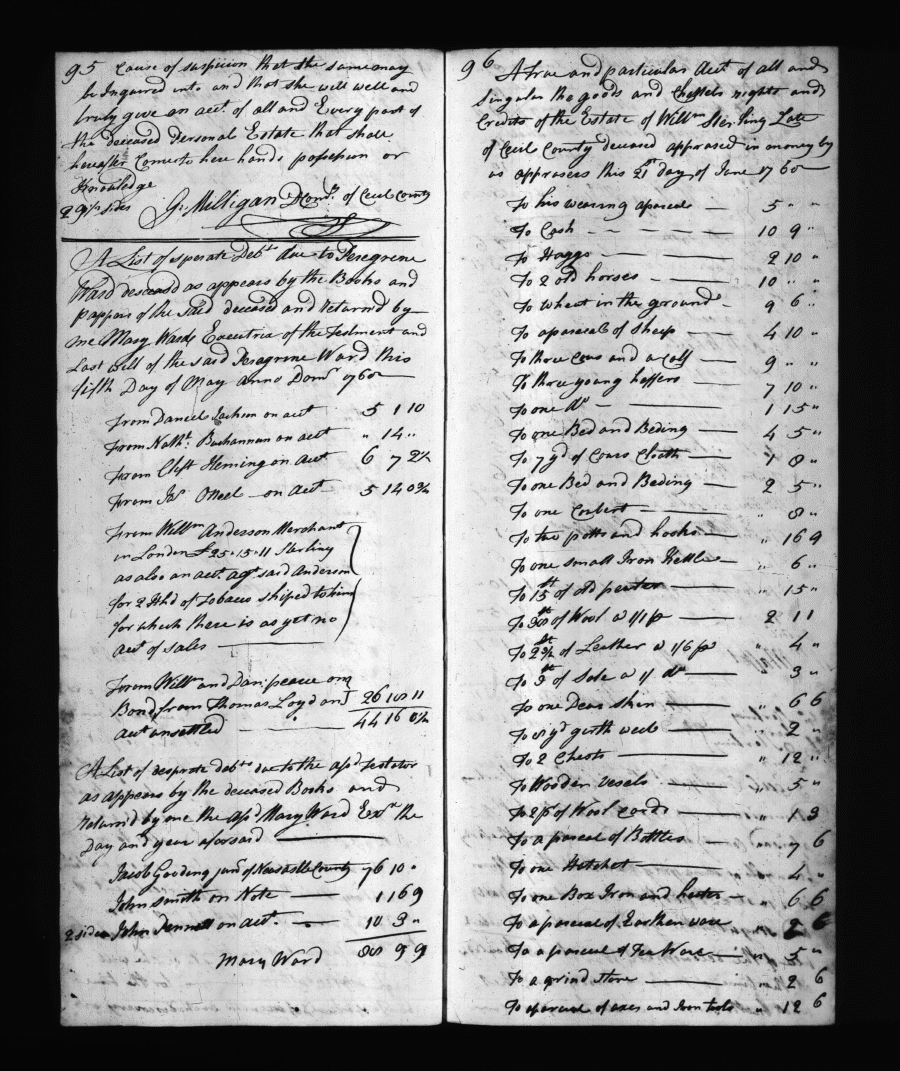 95 Cause of suspicion that the same may
be Inquired into and that she will well and
truly give an acct. of all and Every part of
the deceased Personal Estate that shall
hereafter Come to her hands possession or
Knowledge
2 9/12 sides G: Milligan D Com.y of Cecil County
A List of sperate Debts due to Peregrine
Ward deceasd as appears by the Books and
pappers of the said deceased and Returnd by
me Mary Ward Executrix of the Testment and
Last Will of the said Peragrine Ward this
fifth Day of May Anno Dom: 1760
From Daniel Jackson on acct 5 1 10
From Nath.l Buchannan on acct " 14 "
From Cleft Heming on acct 6 7 2½
From Ja.s ONeel on acct 5 14 0¾
From Will.m Anderson Merchant
in London £25.15.11 Sterling
as also an acct. agt said Anderson
for 2 Hhd of Tobacco shiped to him
for which there is as yet no
acct of sales
From Will.m and Dan: pearce on
Bond from Thomas Loyd and 26 18 11
acct unsettled 44 16 0¼
A List of desprate debts due to the afsd testator
as appears by the deceased Books and
Returnd by me the afsd Mary Ward Exx the
Day and year aforesaid
Jacob Gooding jun.r of Newcastle County 76 10 "
John Smith on Note 1 16 9
2 sides John Pennell on acct. 10 3 "
Mary Ward 88 9 9
96 A true and particular Acct of all and
Singular the goods and Chattels rights and
Credits of the Estate of Will.m Sterling Late
of Cecil County deceased appraised in money by
us apprasers this 21st day of June 1760
To his wearing aparele 5 " "
To Cash 10 9 "
To Hoggs 2 10 "
To 2 old horses 10 " "
To wheat in the ground 9 6 "
To a parcel of Sheep 4 10 "
To three cows and a calf 9 " "
To three young heffers 7 10 "
To one D.o 1 15 "
To one Bed and Beding 4 5 "
To 7 yd of Cours Cloath 1 8 "
To one Bed and Beding 2 5 "
To one " 8 "
To two potts and hooks " 16 9
To one small Iron Kettle " 6 "
To 15 lt of old peuter " 15 "
To lt of Wool @ 1/1 p 2 11
To 2¾ lt of Leather @ 1/6 p " 4 "
To 3 lt of Sole @ 1/ do " 3 "
To one Dear Skin " 6 6
To 8 yd girth web " 2 "
To 2 Chests " 12 "
To Wooden vesels " 5 "
To 2 p.r of Wool cards " 1 3
To a parcel of Bottles " 7 6
To one Hatchet " 4 "
To one Box Iron and heater " 6 6
To a parcel of Earthen ware " 2 6
To a parcel of Tea Ware " 5 "
To a grind stone " 2 6
To a parcel of axes and Iron tools " 12 6